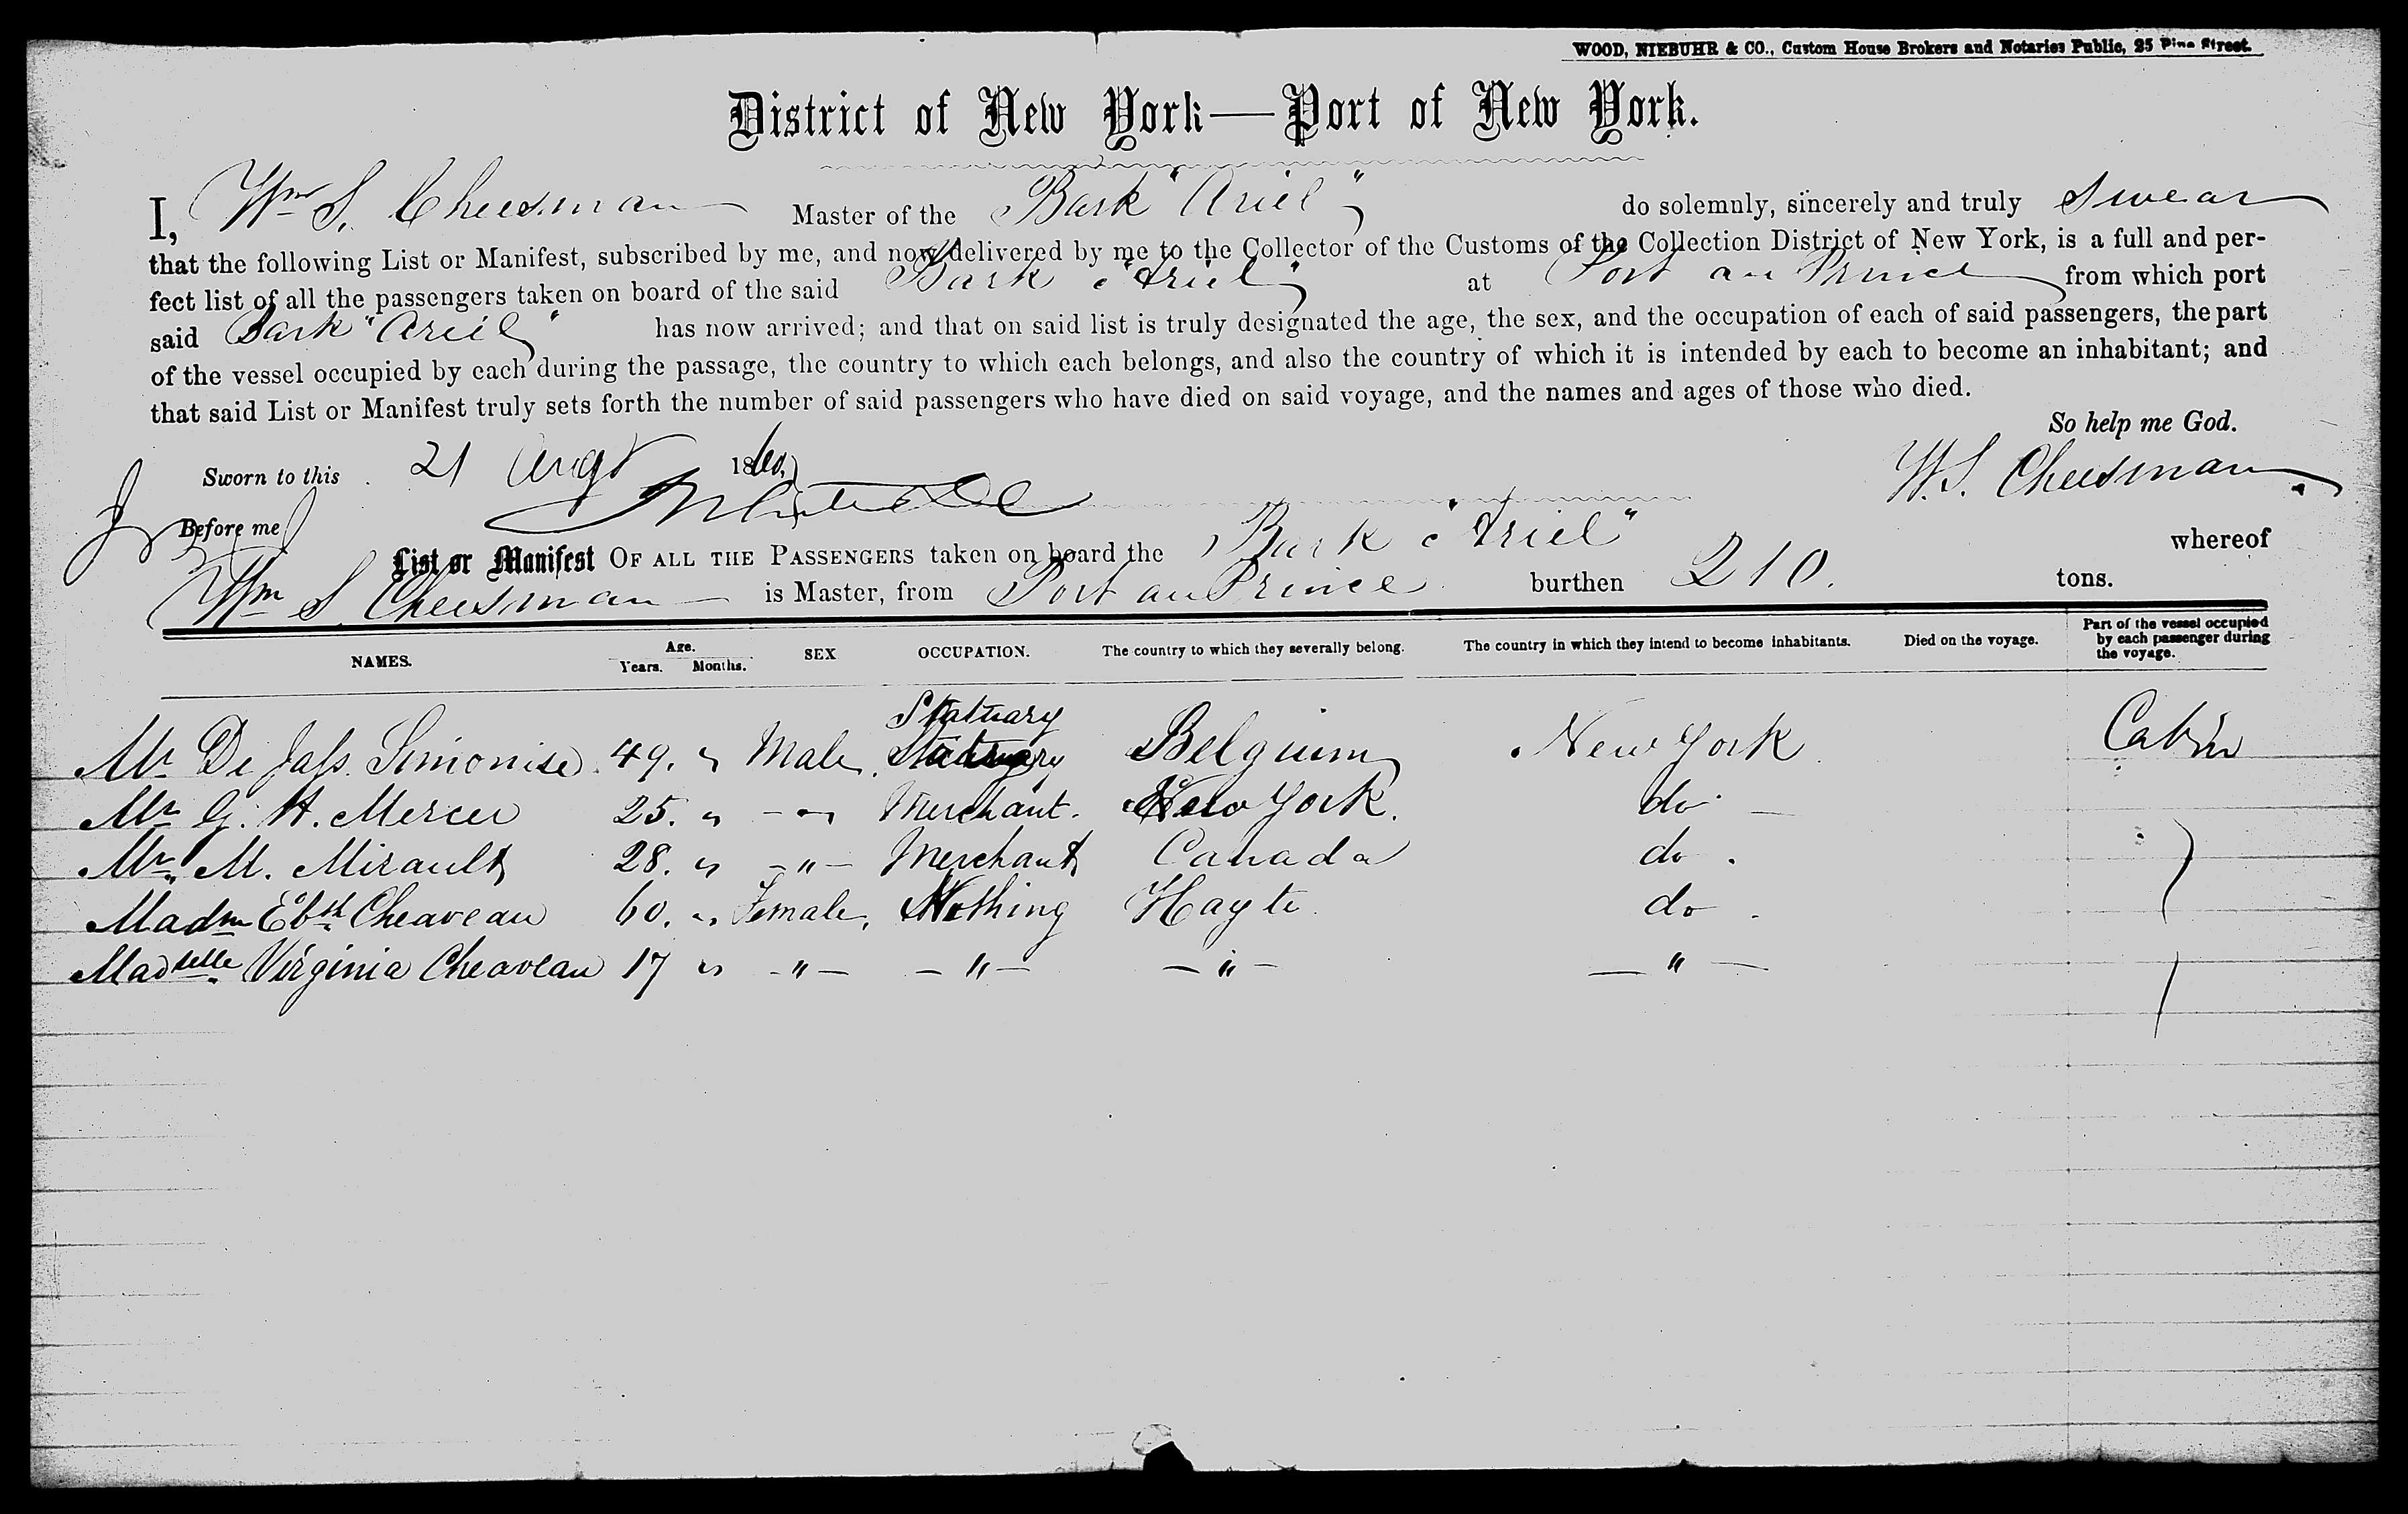 WOOD, NIEBUHR & CO., Custom House Brokers and Notaries Public, 25 Pine Street.
District of New York—Port of New York.
I, Wm S. Cheesman Master of the Bark "Ariel" do solemnly, sincerely and truly swear
that the following List or Manifest, subscribed by me, and now delivered by me to the Collector of the Customs of the Collection District of New York, is a full and per-
fect list of all the passengers taken on board of the said Bark "Ariel" at Port au Prince from which port
said Bark "Ariel" has now arrived; and that on said list is truly designated the age, the sex, and the occupation of each of said passengers, the part
of the vessel occupied by each during the passage, the country to which each belongs, and also the country of which it is intended by each to become an inhabitant; and
that said List or Manifest truly sets forth the number of said passengers who have died on said voyage, and the names and ages of those who died.
So help me God.
Sworn to this 21 Augt 1860, W.S. Cheesman
Before me
List or Manifest OF ALL THE PASSENGERS taken on board the Bark "Ariel" whereof
Wm S Cheesman is Master, from Port au Prince burthen 210. tons.
NAMES. Age. Years. Months. SEX OCCUPATION. The country to which they severally belong. The country in which they intend to become inhabitants. Died on the voyage. Part of the vessel occupied by each passenger during the voyage.
Statuary
Mr De Simonise 49. " Male. Statuary Belgium New York Cabin
Mr G. H. Mercer 25. " - " Merchant. New York. do —
Mr. M. Mirault 28. " - " - Merchant Canada do .
Madm Ebth Cheaveau 60. " Female, Nothing Hayte do .
Madselle Virginia Cheaveau 17 " - " - - " - - " - — " —